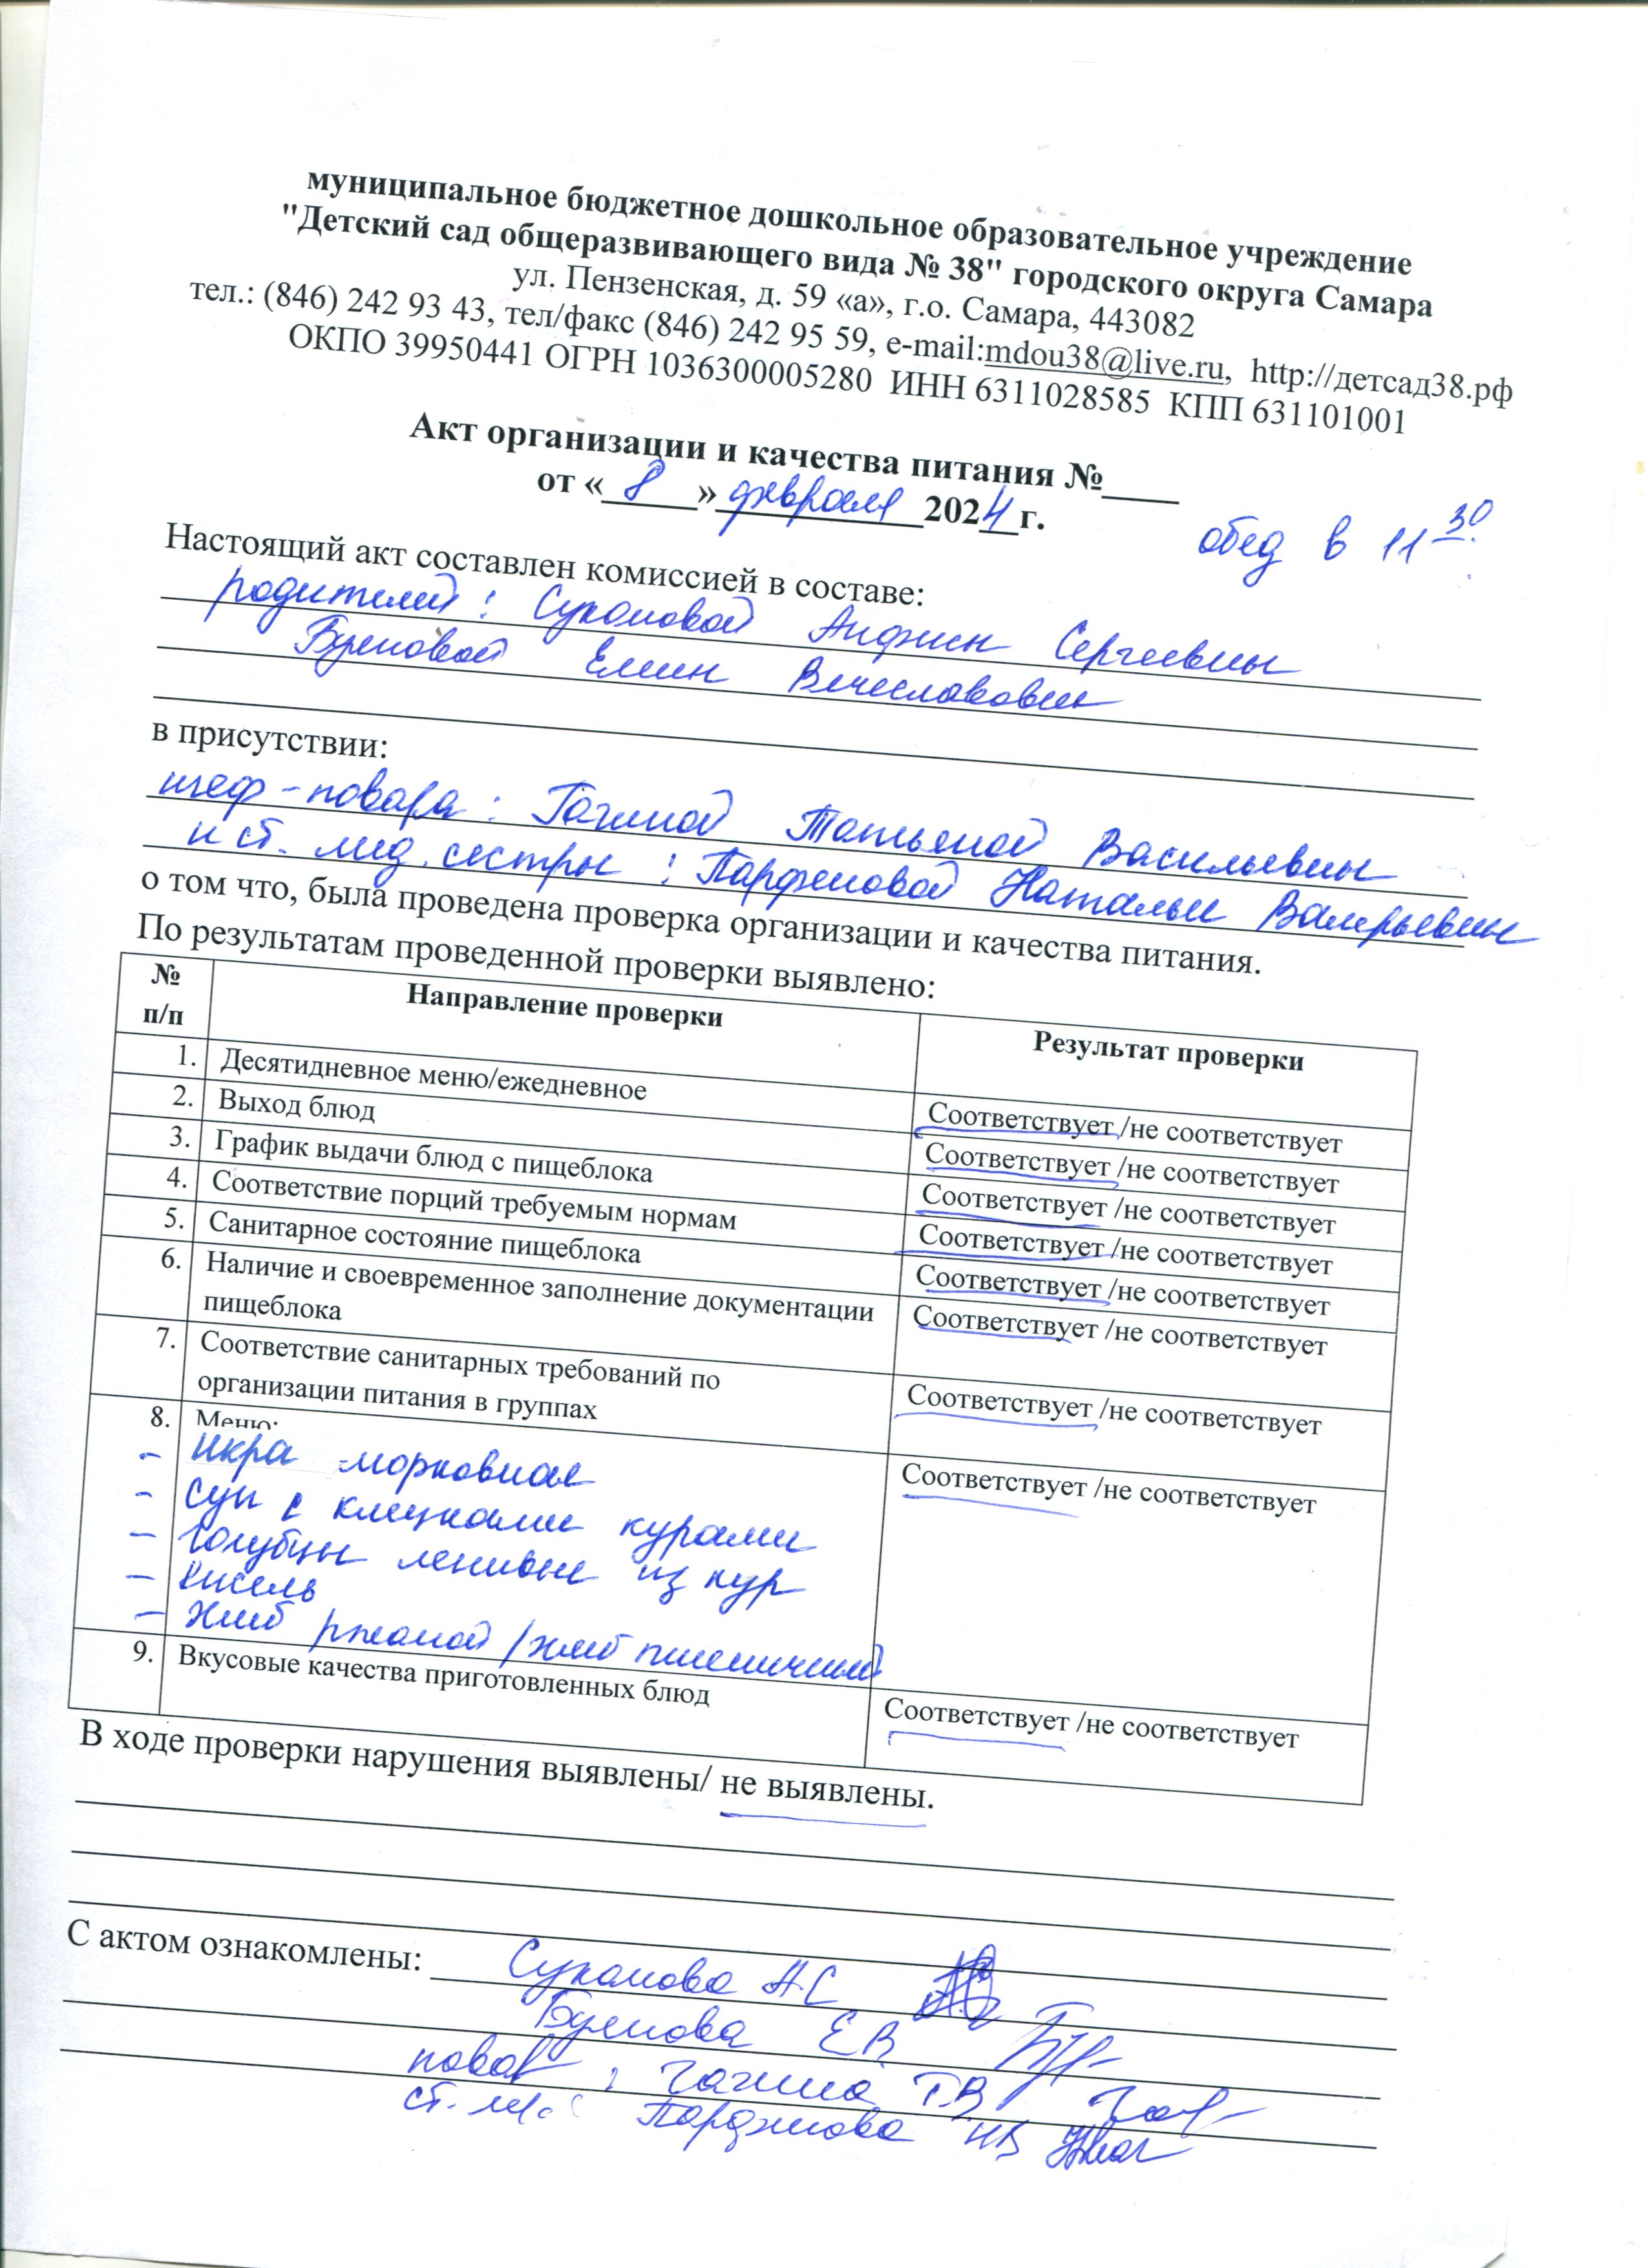 муниципальное бюджетное дошкольное образовательное учреждение
"Детский сад общеразвивающего вида № 38" городского округа Самара
ул. Пензенская, д. 59 «а», г.о. Самара, 443082
тел.: (846) 242 93 43, тел/факс (846) 242 95 59, e-mail:mdou38@live.ru, http://детсад38.рф
ОКПО 39950441 ОГРН 1036300005280 ИНН 6311028585 КПП 631101001
Акт организации и качества питания №____
от «8» февраля 2024 г.
обед в 11 30
Настоящий акт составлен комиссией в составе:
родителей: Сергеевны
Вячеславовны
в присутствии:
шеф-повара: Гагиной Татьяной Васильевны
и ст. мед. сестры: Парфеновой Натальи Валерьевны
о том что, была проведена проверка организации и качества питания.
По результатам проведенной проверки выявлено:
№ п/п Направление проверки Результат проверки
1. Десятидневное меню/ежедневное Соответствует /не соответствует
2. Выход блюд Соответствует /не соответствует
3. График выдачи блюд с пищеблока Соответствует /не соответствует
4. Соответствие порций требуемым нормам Соответствует /не соответствует
5. Санитарное состояние пищеблока Соответствует /не соответствует
6. Наличие и своевременное заполнение документации Соответствует /не соответствует
пищеблока
7. Соответствие санитарных требований по Соответствует /не соответствует
организации питания в группах
8. Меню: Соответствует /не соответствует
- Икра морковная
- Суп с клецками курами
- Голубцы ленивые из кур
- Кисель
- Хлеб ржаной / хлеб пшеничный
9. Вкусовые качества приготовленных блюд Соответствует /не соответствует
В ходе проверки нарушения выявлены/ не выявлены.
С актом ознакомлены: А.С
ЕВ
повар: Гагина Т.В
ст. Парфенова НВ